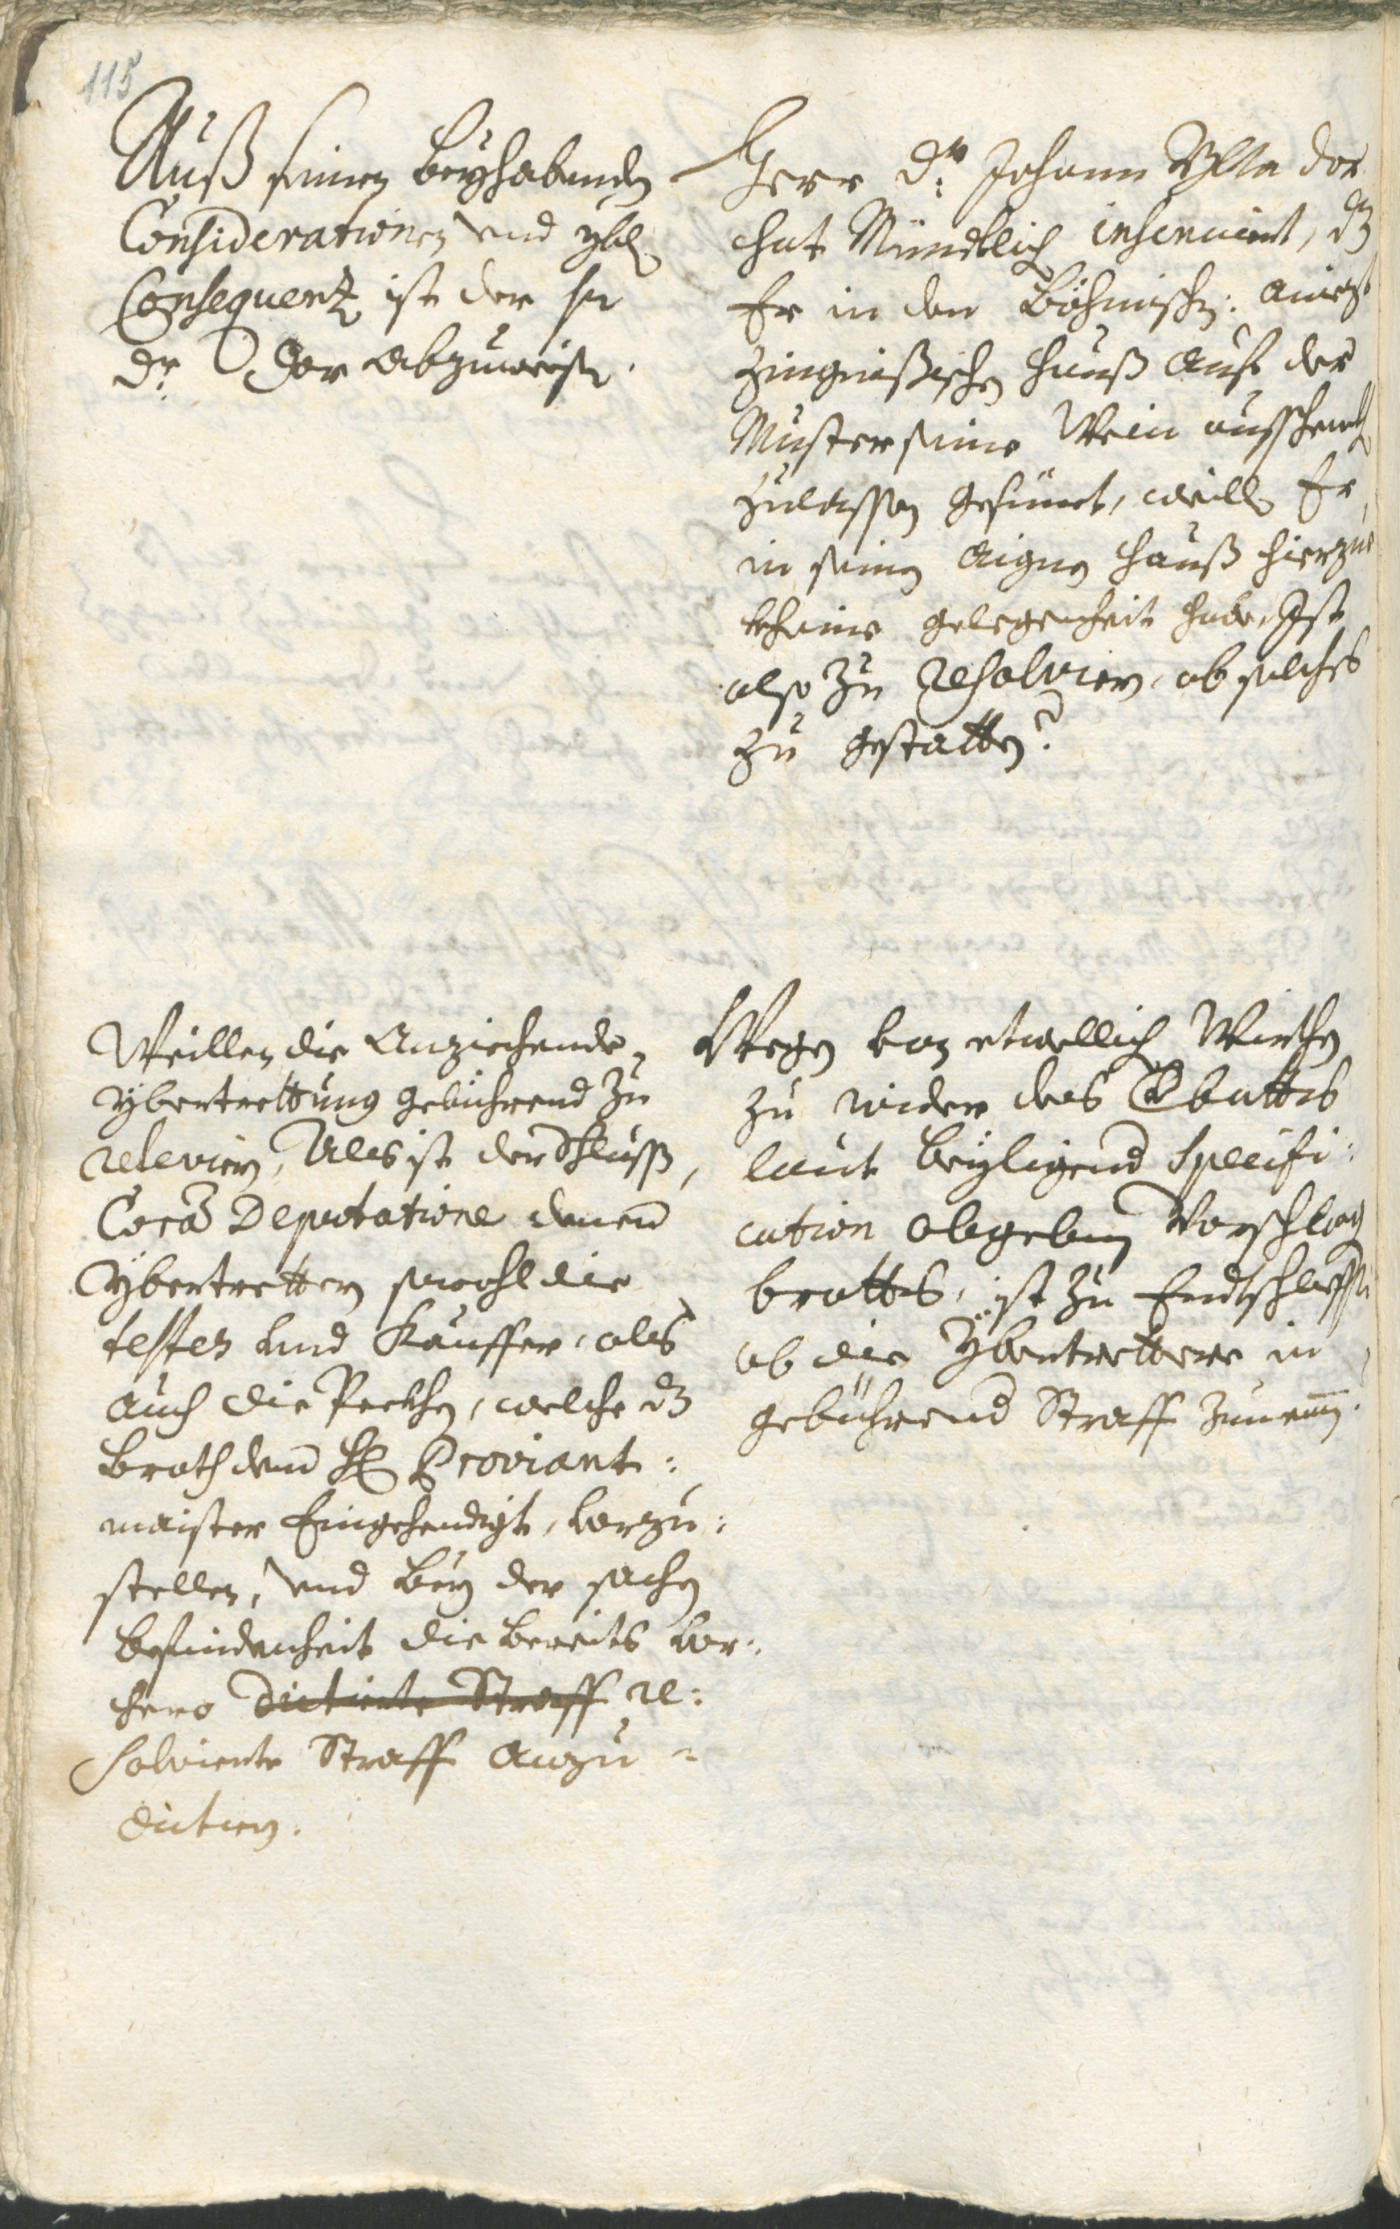 115
Auß seinen beyhabenden
Considerationen vnd ybl
Consequenz ist der hr
Dr: Dor abzuweisen.
Herr Dr: Johann Dor
hat Mündtlich insinuiert, dz
Er in den Böhmisch: anietzt
hauß auf der
Muster seine Wein ausschenkh
zulassen gesinnet, weill Er
in seinen aignen hauß hierzue
kheine gelegenheit habe, Ist
also zu resolviern, ob solches
zu gestatten?
Weillen die Anziehende
Ybertrettung gebührend zu
releviern, Als ist der Schluss,
Corã Deputatione denen
Ybertrettern sowohl die
testes vnd Kauffer, als
auch die Peckhen, welche dz
Brodt dem H Proviant:
maister Eingehendigt, vorzu:
stellen, vnd bey der sachen
befindenheit die bereits vor:
hero dictierte Straff re:
solvierte Straff anzu
dictiern.
Wegen von etwellich Wirthen
zu wider des
laut beyligend Specifi:
cation abgeben Vorschlag
brotts, ist zu Endtschlossen
ob die Ybertrettere in
gebührend Straff zunemen.